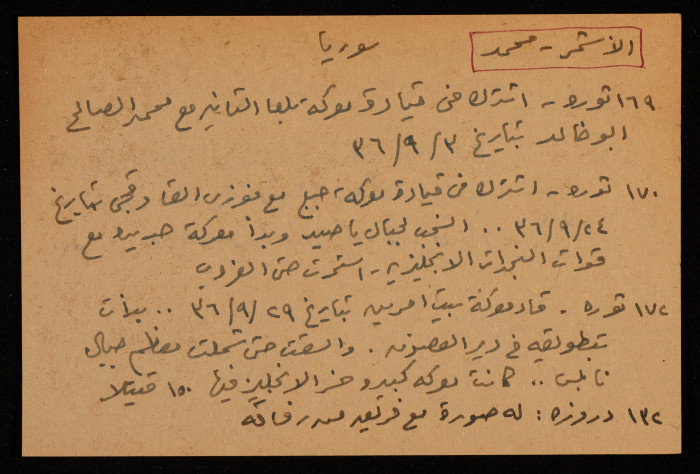 الأشمر - محمد
سوريا
١٦٩ ثورة - اشترك في قيادة معركة بلعا الثانية مع محمد الصالح
ابو خالد بتاريخ ٣/٩/٣٦
١٧٠ ثورة - اشترك في قيادة معركة جبع مع فوزي القاوقجي بتاريخ
٢٤/٩/٣٦ .. انسحب لجبال ياصيد وبدأ معركة جديدة مع
قوات النجدات الانجليزية - استمرت حتى الغروب
١٧٢ ثورة - قاد معركة بيت امرين بتاريخ ٢٩/٩/٣٦ .. بدأت
بتطويقه في دير الغصون . واتسعت حتى شملت معظم جبال
نابلس .. كانت معركه كبيرة خسر الانجليز فيها ١٥٠ قتيلا
١٣٢ دروزه : له صورة مع فريق من رفاقه